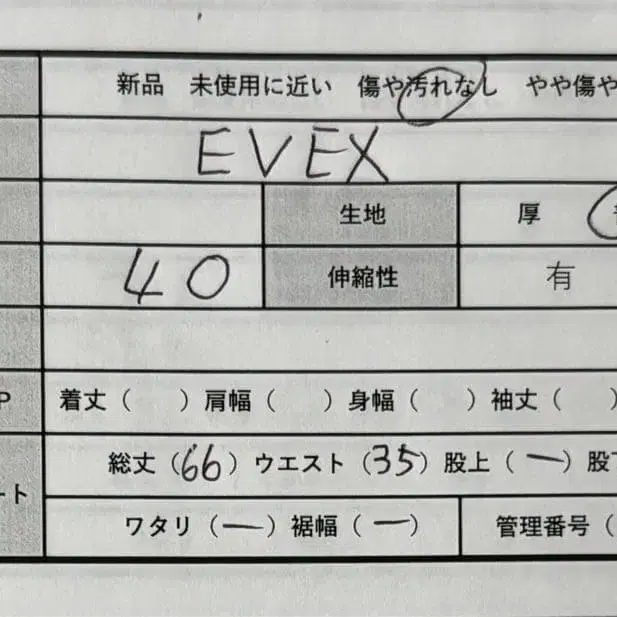 新品 未使用に近い 傷や汚れなし やや傷や
EVEX
生地 厚
40 伸縮性 有
P 着丈（ ）肩幅（ ）身幅（ ）袖丈（ ）
総丈（66）ウエスト（35）股上（ー）股下
ート
ワタリ（ー）裾幅（ー） 管理番号（